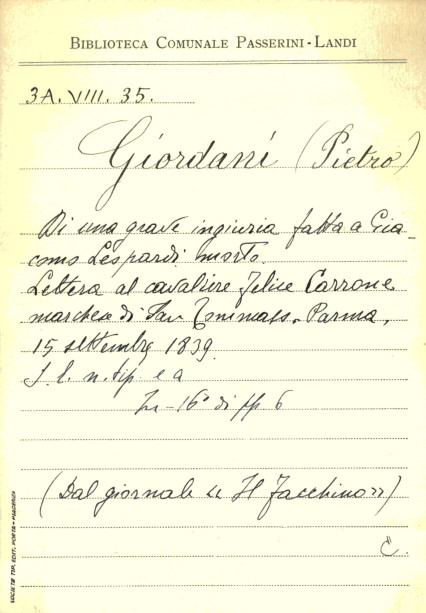 BIBLIOTECA COMUNALE PASSERINI - LANDI
3A. VIII. 35.
Giordani (Pietro)
Di una grave ingiuria fatta a Gia-
como Leopardi morto.
Lettera al cavaliere Felice Carrone
marchese di San Tommaso. Parma,
15 settembre 1839.
S. l. n. tip. e a
In-16° di pp 6
(Dal giornale « Il Facchino »)
C.
SOCIETÀ TIP. EDIT. PORTA - PIACENZA